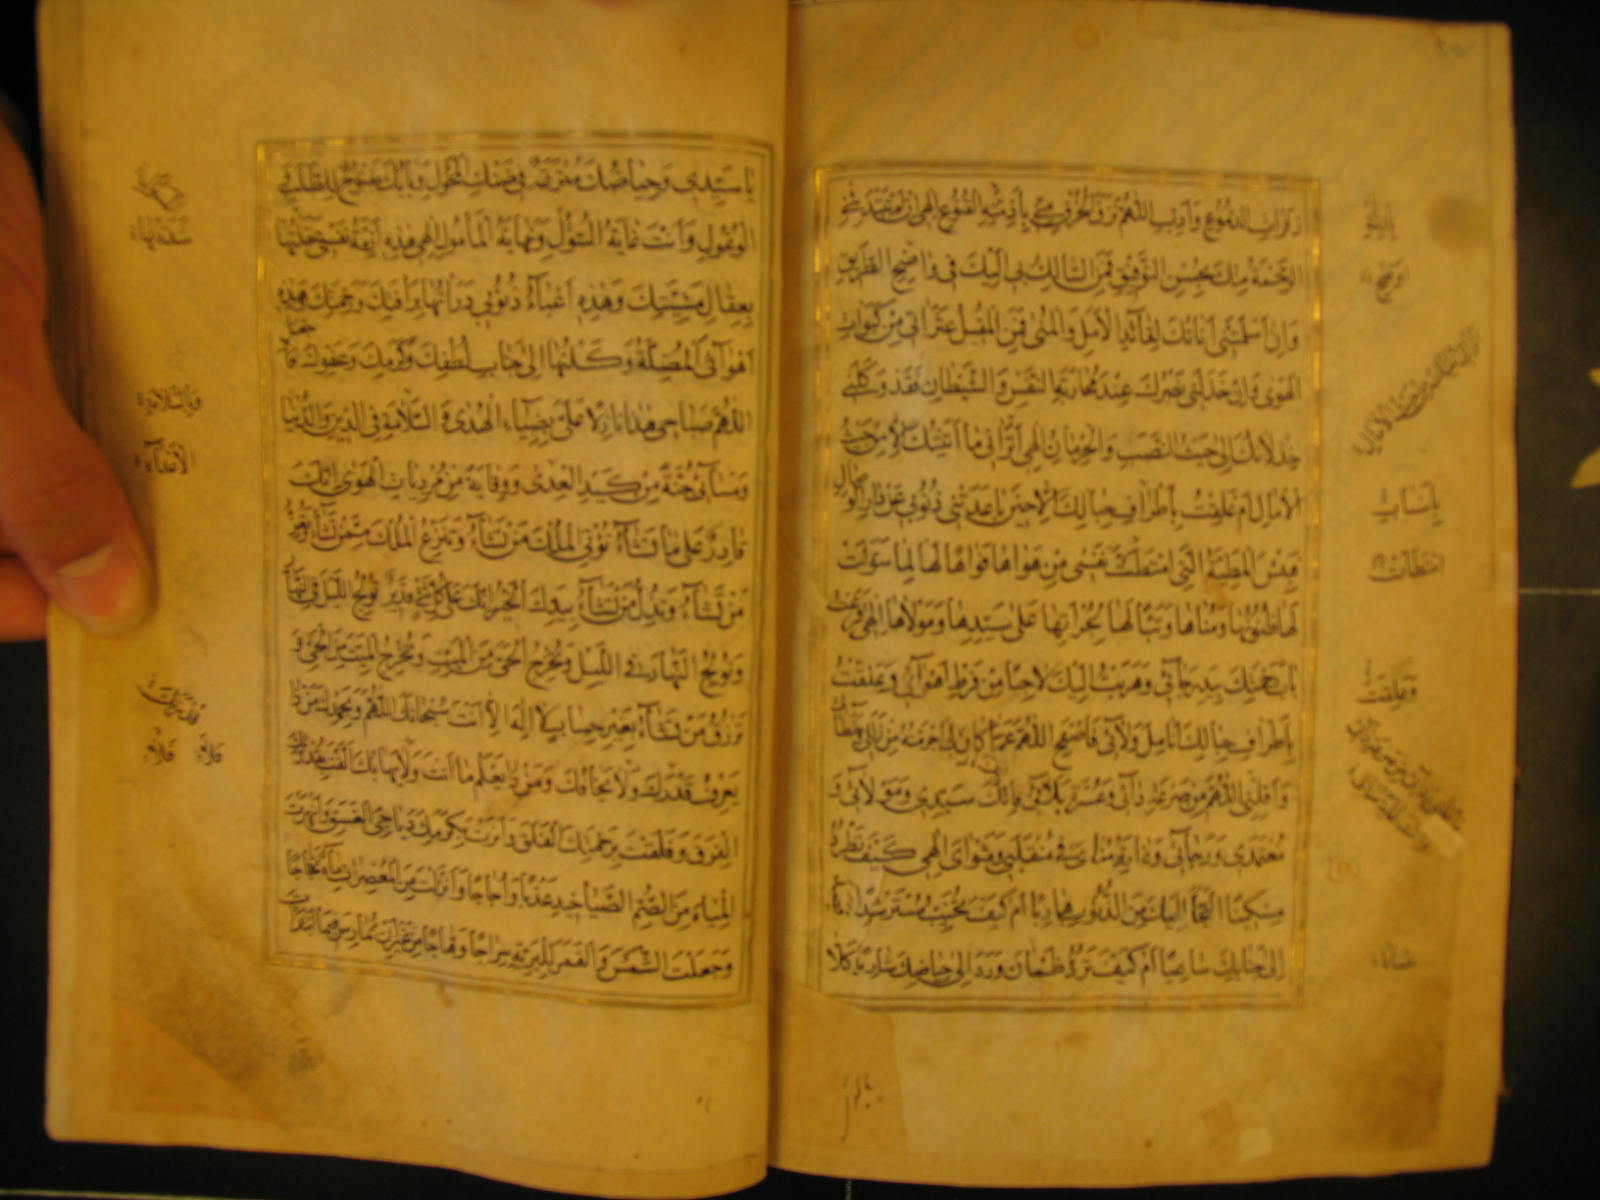 زفرات الدموع وأدب اللهم نزق الخرق مني بأزمة القنوع إلهي إن لم تبتدئني
الرحمة منك بحسن التوفيق فمن السالك بي إليك في واضح الطريق
وإن أسلمتني أناتك لقائد الأمل والمنى فمن المقيل عثراتي من كبوات
الهوى وإن خذلني نصرك عند محاربة النفس والشيطان فقد وكلني
خذلانك إلى حيث النصب والحرمان إلهي أتراني ما أتيتك إلا من حيث
الآمال أم علقت بأطراف حبالك إلا حين باعدتني ذنوبي عن دار الوصال
فبئس المطية التي امتطت نفسي من هواها فواها لها لما سولت
لها ظنونها ومناها وتبا لها لجرأتها على سيدها ومولاها إلهي قرعت
باب رحمتك بيد رجائي وهربت إليك لاجئا من فرط أهوائي وعلقت
بأطراف حبالك أنامل ولائي فاصفح اللهم عما كان من زللي وخطائي
وأقلني اللهم من صرعة دائي وعسرة بلائي فإنك سيدي ومولائي و
معتمدي ورجائي وغاية مناي في منقلبي ومثواي إلهي كيف تطرد
مسكينا التجأ إليك من الذنوب هاربا أم كيف تخيب مسترشدا
إلى جنابك ساعيا أم كيف ترد ظمآن ورد إلى حياضك شاربا كلا
بأسباب
امتطأت
وعلقت
يا سيدي وحياضك مترعة في ضنك المحول وبابك مفتوح للطلب
والوغول وأنت غاية السؤل ونهاية المأمول إلهي هذه أزمة نفسي عقلتها
بعقال مشيتك وهذه أعباء ذنوبي درأتها برأفتك ورحمتك وهذه
أهوائي المضلة وكلتها إلى جناب لطفك وكرمك وعفوك فاجعل
اللهم صباحي هذا نازلا علي بضياء الهدى والسلامة في الدين والدنيا
ومسائي جنة من كيد العدى ووقاية من مرديات الهوى إنك
قادر على ما تشاء تؤتي الملك من تشاء وتنزع الملك ممن تشاء وتعز
من تشاء وتذل من تشاء بيدك الخير إنك على كل شيء قدير تولج الليل في النهار
وتولج النهار في الليل وتخرج الحي من الميت وتخرج الميت من الحي و
ترزق من تشاء بغير حساب لا إله إلا أنت سبحانك اللهم وبحمدك من ذا
يعرف قدرك ولا يخافك ومن ذا يعلم ما أنت ولا يهابك ألفت بقدرتك
الفرق وفلقت برحمتك الفلق وأنرت بكرمك دياجي الغسق وأنهرت
المياه من الصم الصياخيد عذبا وأجاجا وأنزلت من المعصرات ماء ثجاجا
وجعلت الشمس والقمر للبرية سراجا وهاجا من غير أن تمارس فيما ابتدأت
وبالسلامة
الأعداء